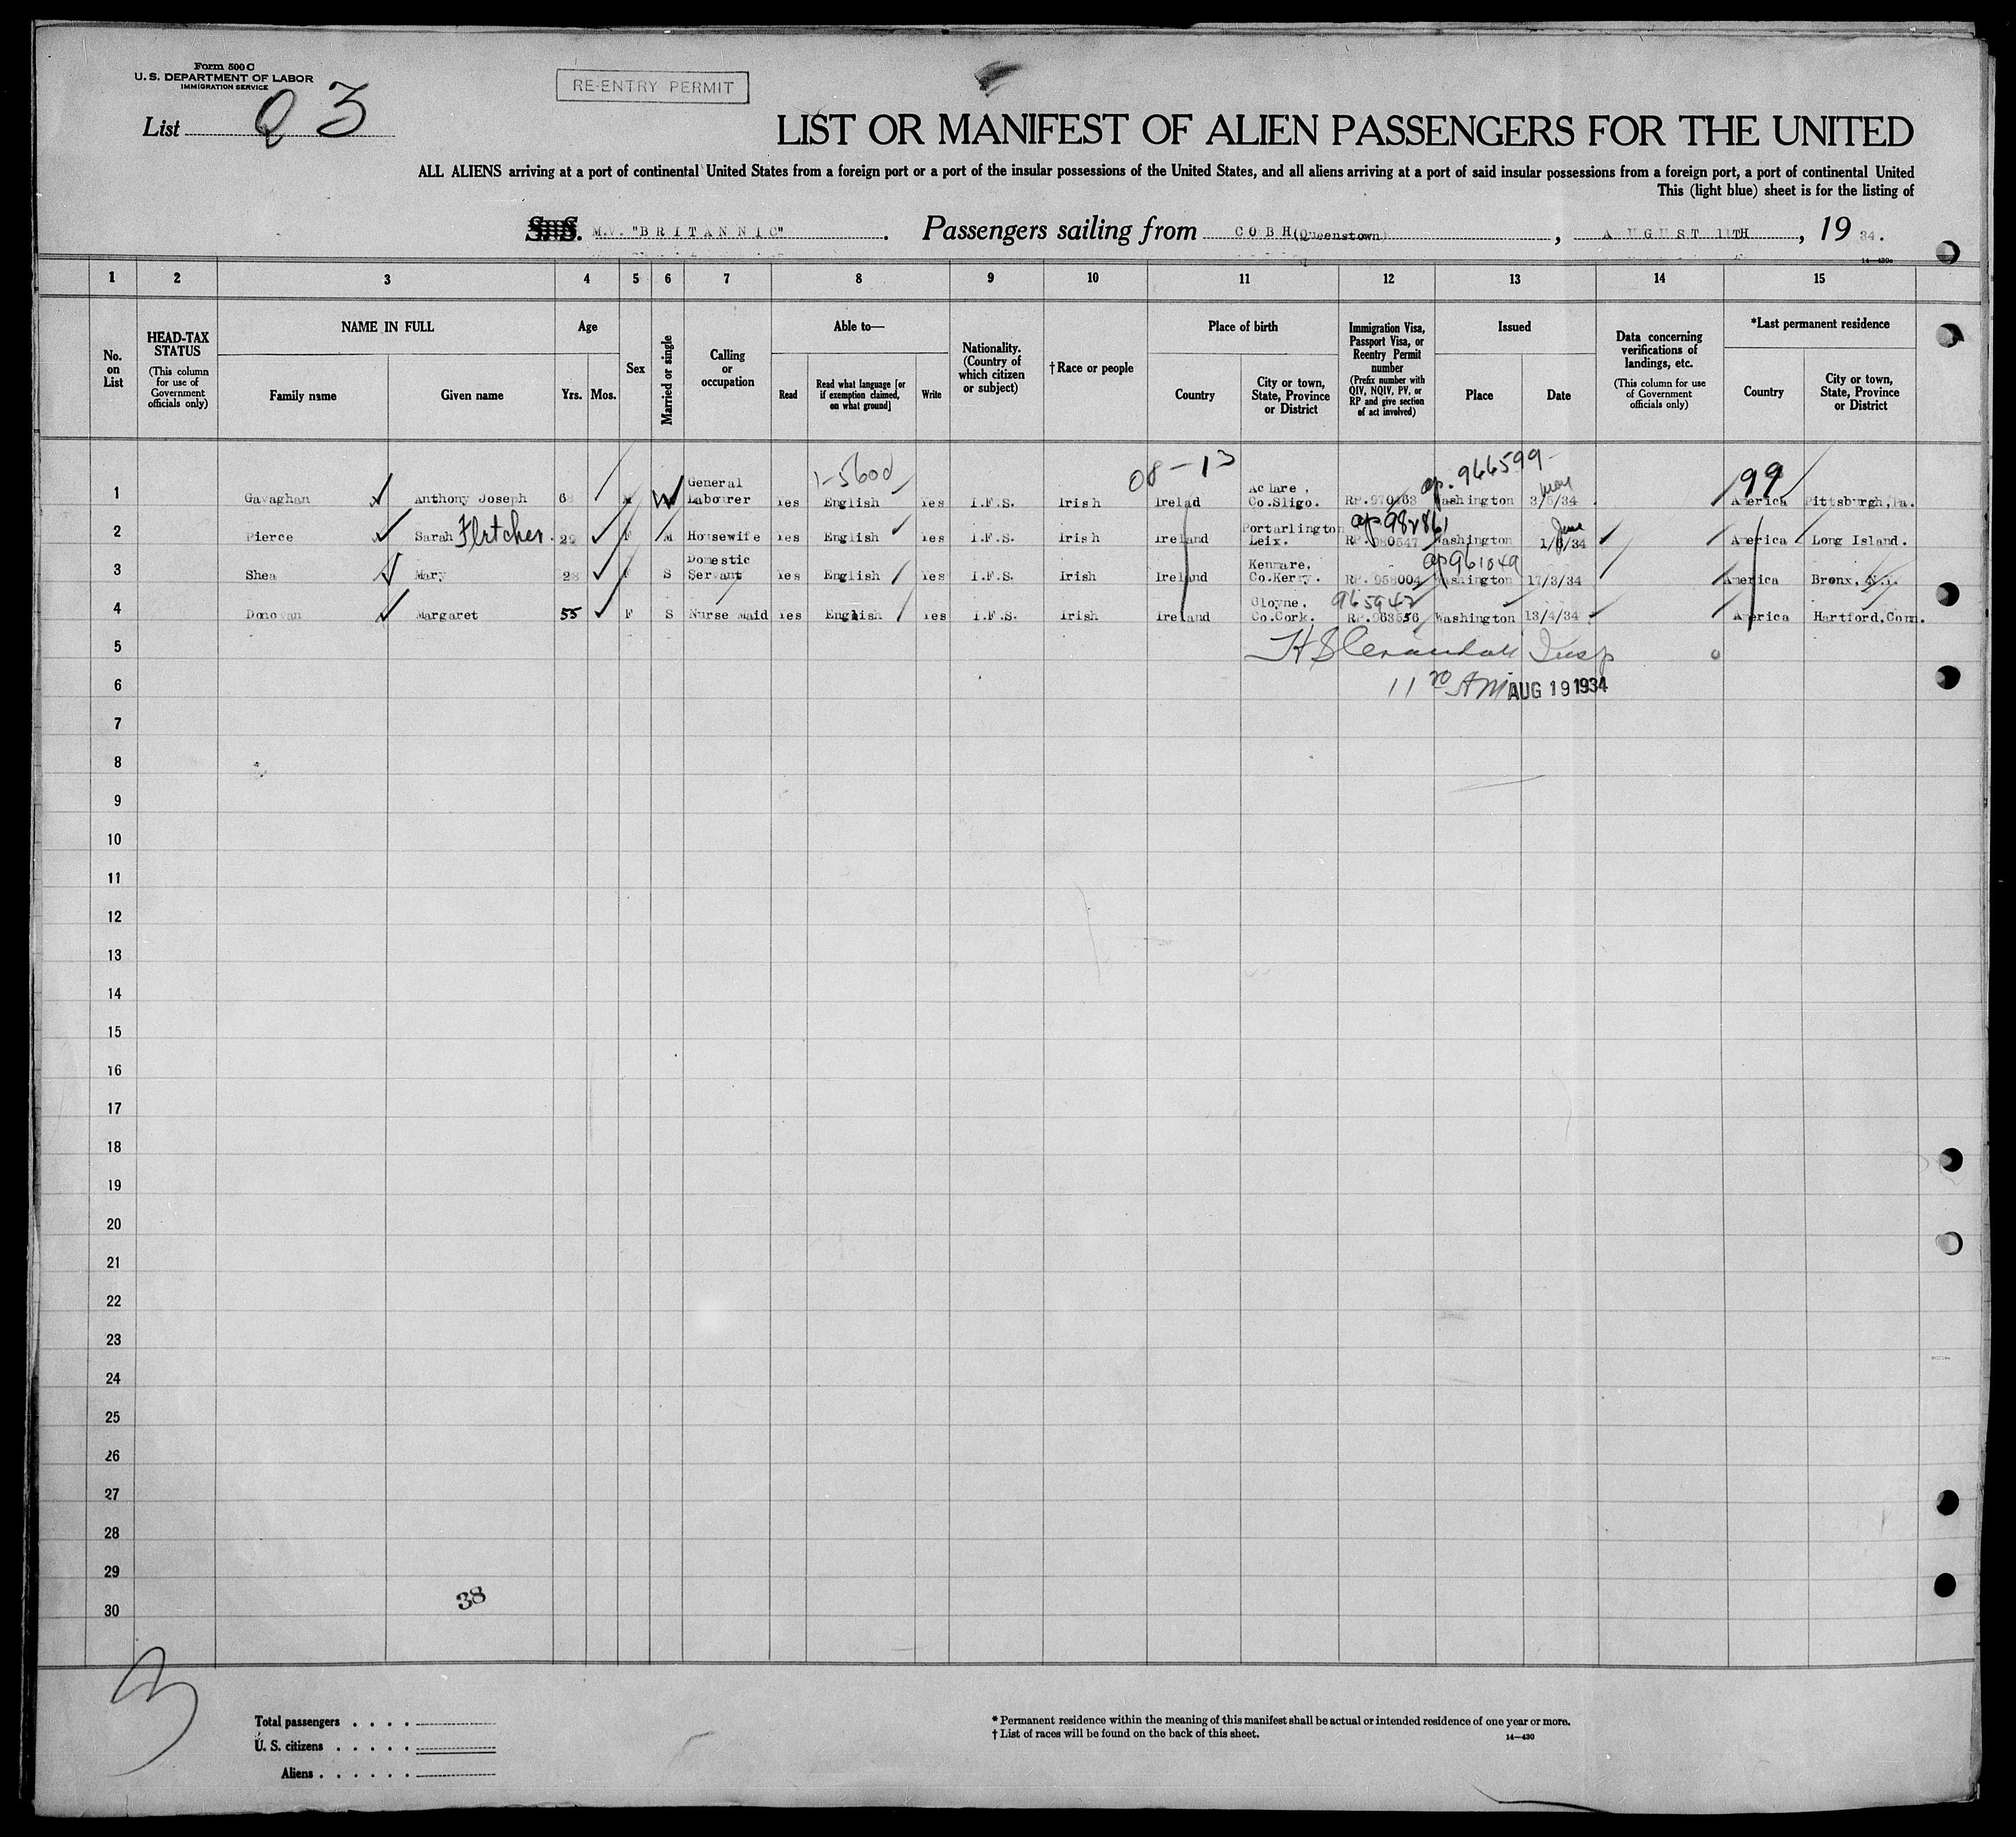 Form 500 C
U. S. DEPARTMENT OF LABOR
IMMIGRATION SERVICE
RE-ENTRY PERMIT
List 3
LIST OR MANIFEST OF ALIEN PASSENGERS FOR THE UNITED
ALL ALIENS arriving at a port of continental United States from a foreign port or a port of the insular possessions of the United States, and all aliens arriving at a port of said insular possessions from a foreign port, a port of continental United
This (light blue) sheet is for the listing of
S.S. M.V. "BRITANNIC". Passengers sailing from COBH (Queenstown), AUGUST 11TH, 1934.
14—430c
1 2 3 4 5 6 7 8 9 10 11 12 13 14 15
No. on List
HEAD-TAX STATUS
(This column for use of Government officials only)
NAME IN FULL
Family name Given name
Age
Yrs. Mos.
Sex
Married or single
Calling or occupation
Able to—
Read
Read what language [or if exemption claimed, on what ground]
Write
Nationality. (Country of which citizen or subject)
†Race or people
Place of birth
Country
City or town, State, Province or District
Immigration Visa, Passport Visa, or Reentry Permit number
(Prefix number with QIV, NQIV, PV, or RP and give section of act involved)
Issued
Place Date
Data concerning verifications of landings, etc.
(This column for use of Government officials only)
*Last permanent residence
Country
City or town, State, Province or District
08-13 ap. 966599 May 99
1 Gavaghan Anthony Joseph M W General Labourer Yes English Yes I.F.S. Irish Irelad Aclare, Co.Sligo. Washington 3/5/34 America Pittsburgh,Pa.
ap 982861 June
2 Pierce Sarah Fletcher. F M Housewife Yes English Yes I.F.S. Irish Ireland Portarlington Leix. RP.980547 Washington 1/6/34 America Long Island.
ap 961049
3 Shea Mary 28 F S Domestic Servant Yes English Yes I.F.S. Irish Ireland Kenmare, Co.Kerry. RP. 958004 Washington 17/3/34 America Bronx, N.Y.
965942
4 Donovan Margaret 55 F S Nurse Maid Yes English Yes I.F.S. Irish Ireland Cloyne, Co.Cork. RP.963556 Washington 13/4/34 America Hartford,Conn.
5 Insp
6 AM AUG 19 1934
7
8
9
10
11
12
13
14
15
16
17
18
19
20
21
22
23
24
25
26
27
28
29
30
38
3
Total passengers . . . .
U. S. citizens . . . . .
Aliens . . . . . .
* Permanent residence within the meaning of this manifest shall be actual or intended residence of one year or more.
† List of races will be found on the back of this sheet.
14—430